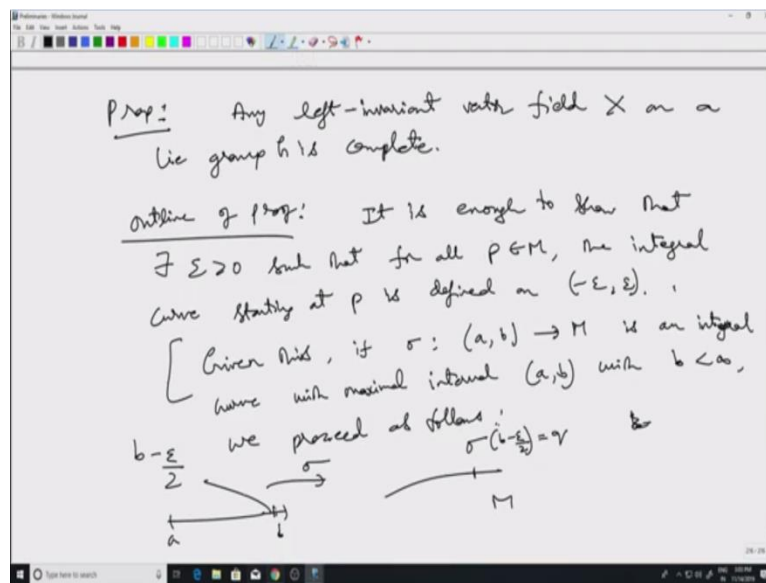 Preliminaries - Windows Journal
File Edit View Insert Actions Tools Help
Prop: Any left-invariant vector field X on a
Lie group G is complete.
outline of proof: It is enough to show that
∃ ε>0 such that for all p∈M, the integral
curve starting at p is defined on (-ε, ε).
[ Given this, if σ: (a, b) → M is an integral
curve with maximal interval (a, b) with b < ∞,
we proceed as follows:
b - ε/2 σ σ(b-ε/2) = q
a b M
Type here to search